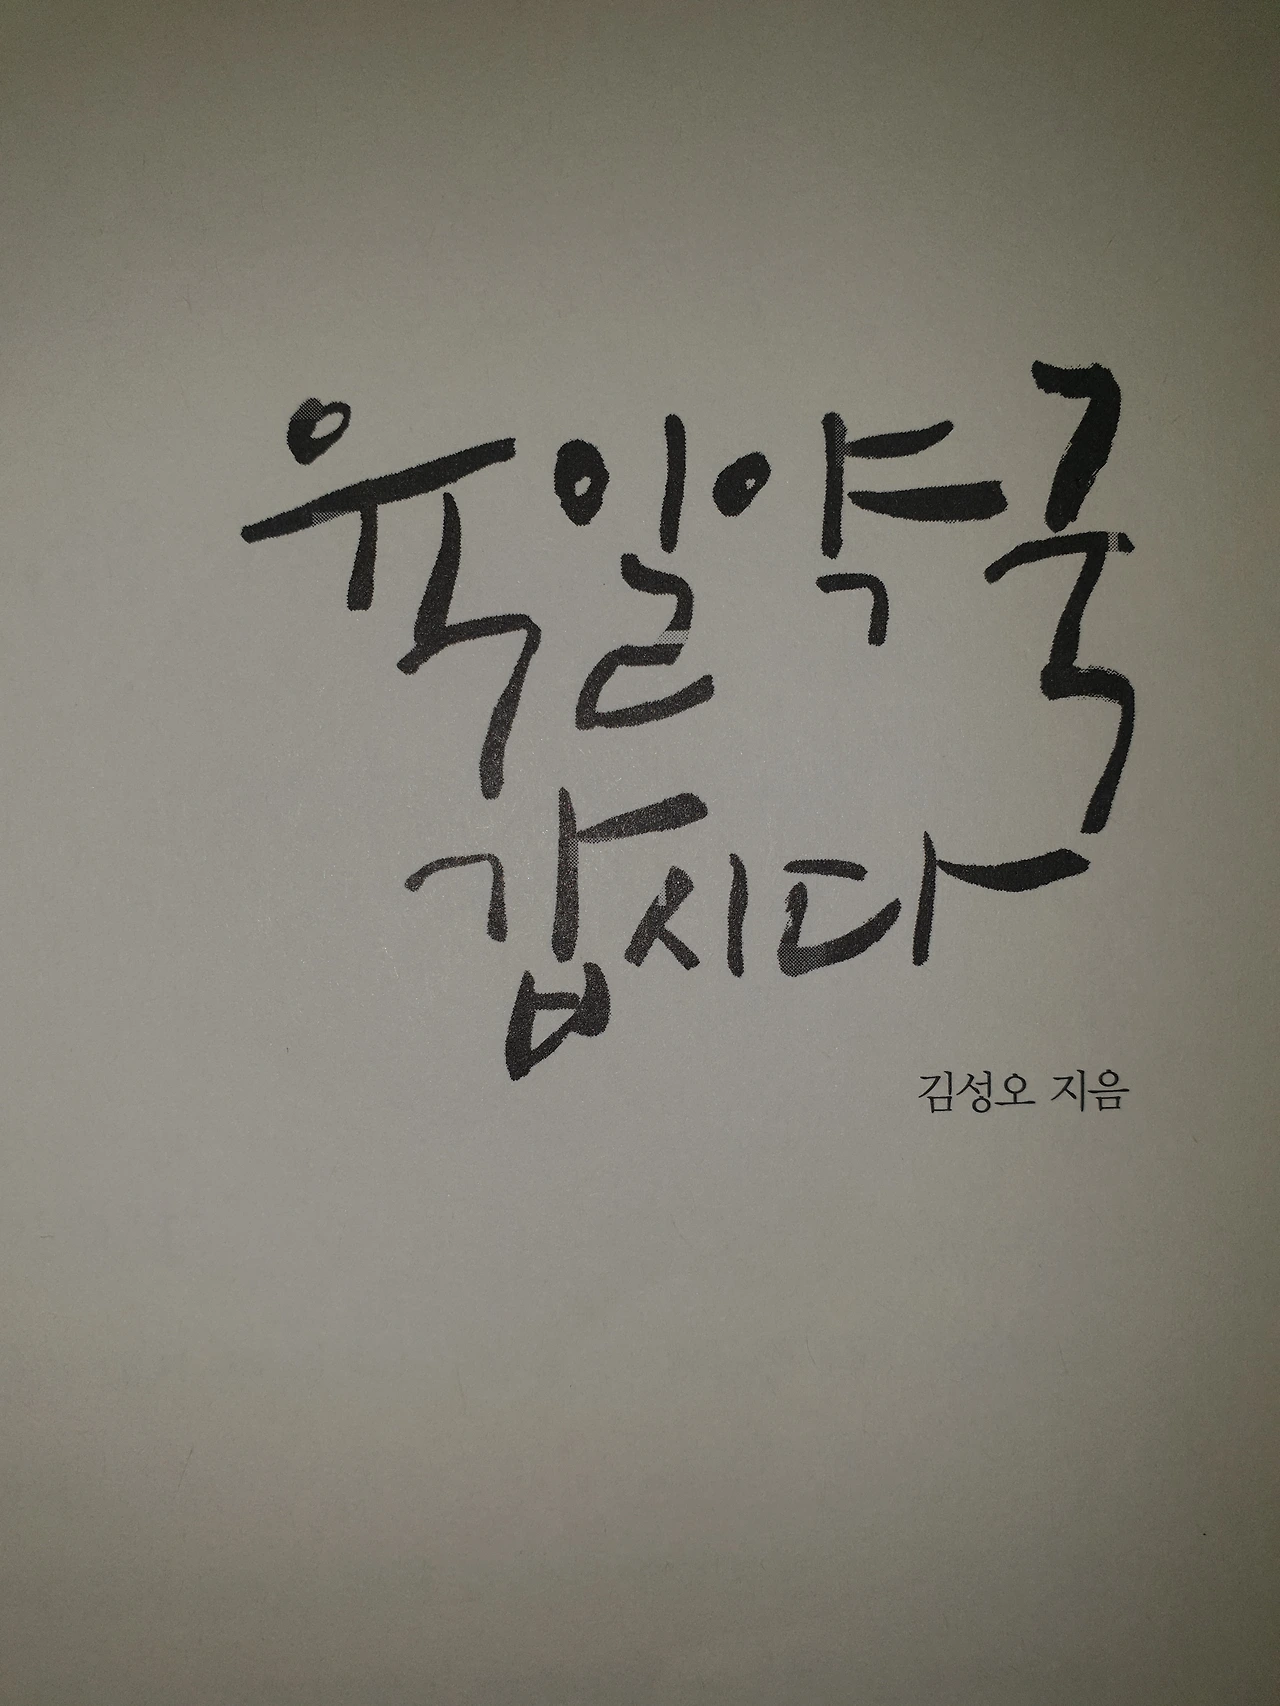 육일약국
갑시다
김성오 지음